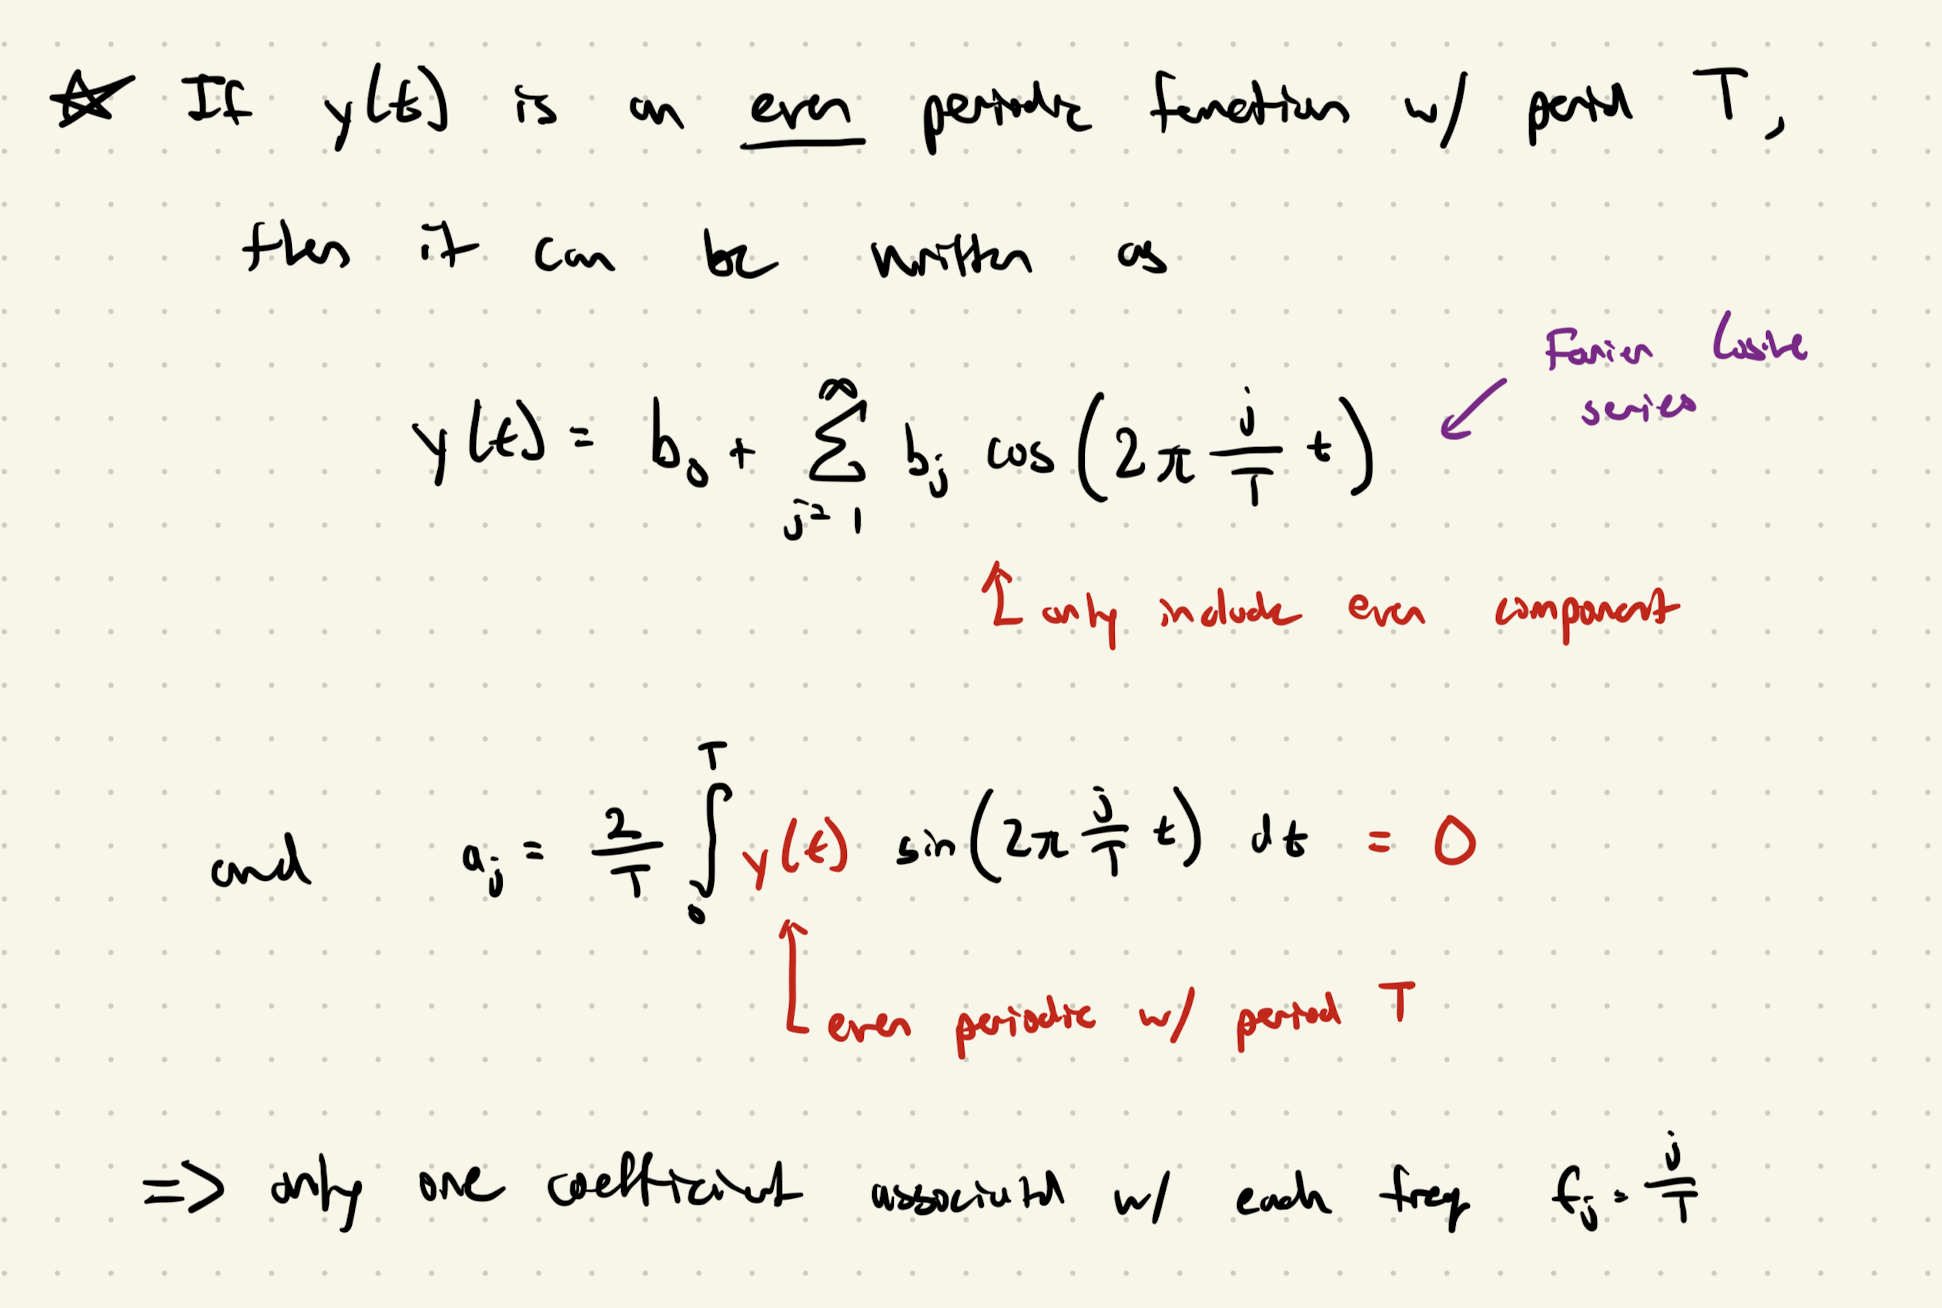 ☆ If y(t) is an even periodic function w/ period T,
then it can be written as
Fourier Cosine
series
y(t) = b₀ + ∑_{j=1}^{∞} b_j cos(2π j/T t)
only include even component
and a_j = 2/T ∫₀ᵀ y(t) sin(2π j/T t) dt = 0
even periodic w/ period T
=> only one coefficient associated w/ each freq f_j = j/T